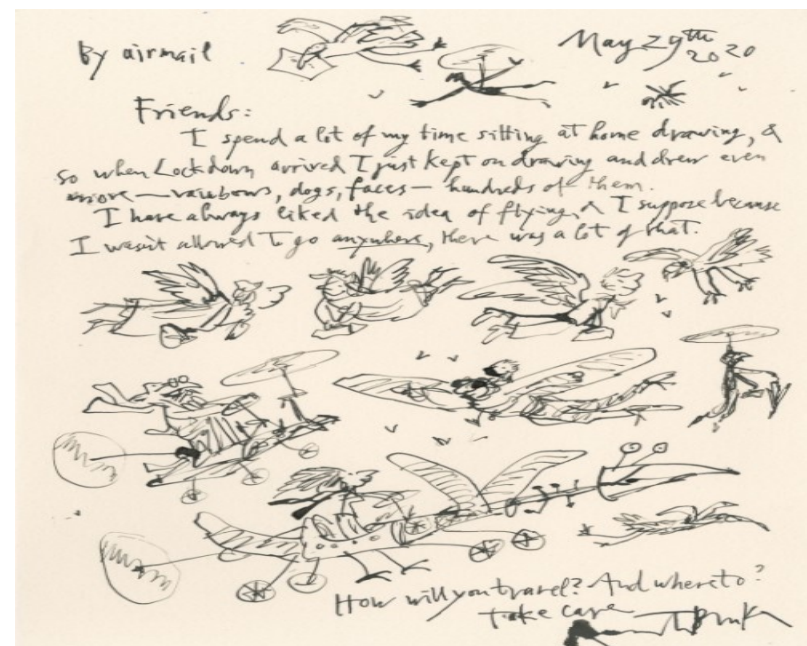 By airmail
May 29th
2020
Friends:
I spend a lot of my time sitting at home drawing, &
so when Lockdown arrived I just kept on drawing and drew even
more — rainbows, dogs, faces — hundreds of them.
I have always liked the idea of flying, & I suppose because
I wasn't allowed to go anywhere, there was a lot of that.
How will you travel? And where to?
Take care